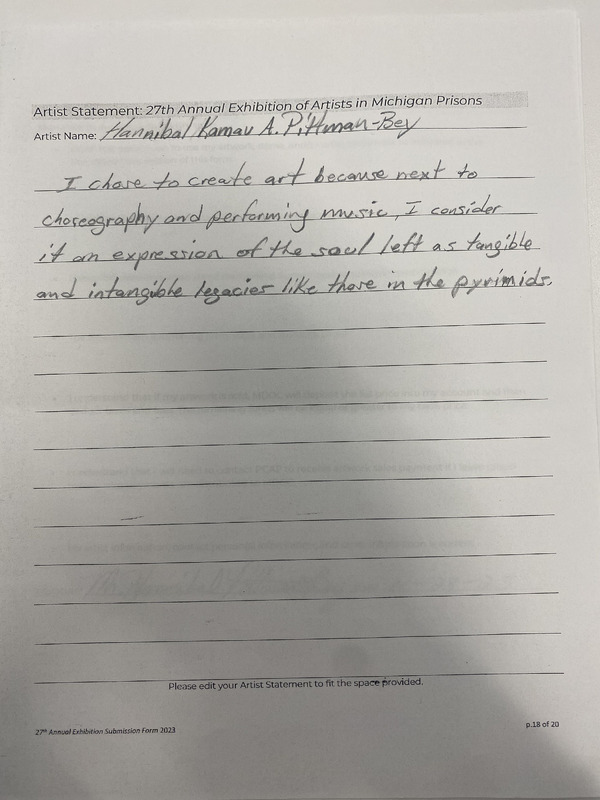 Artist Statement: 27th Annual Exhibition of Artists in Michigan Prisons
Artist Name: Hannibal Kamau A. Pittman-Bey
I chose to create art because next to
choreography and performing music, I consider
it an expression of the soul left as tangible
and intangible legacies like those in the pyrimids.
Please edit your Artist Statement to fit the space provided.
27th Annual Exhibition Submission Form 2023
p.18 of 20